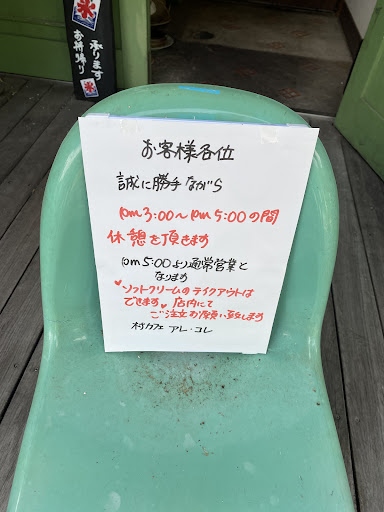 氷
承ります
お持帰り
お客様各位
誠に勝手ながら
pm3:00〜pm5:00の間
休憩を頂きます
pm5:00より通常営業と
なります
♥ソフトクリームのテイクアウトは
できます♥店内にて
ご注文お願い致します
村カフェ アレ・コレ